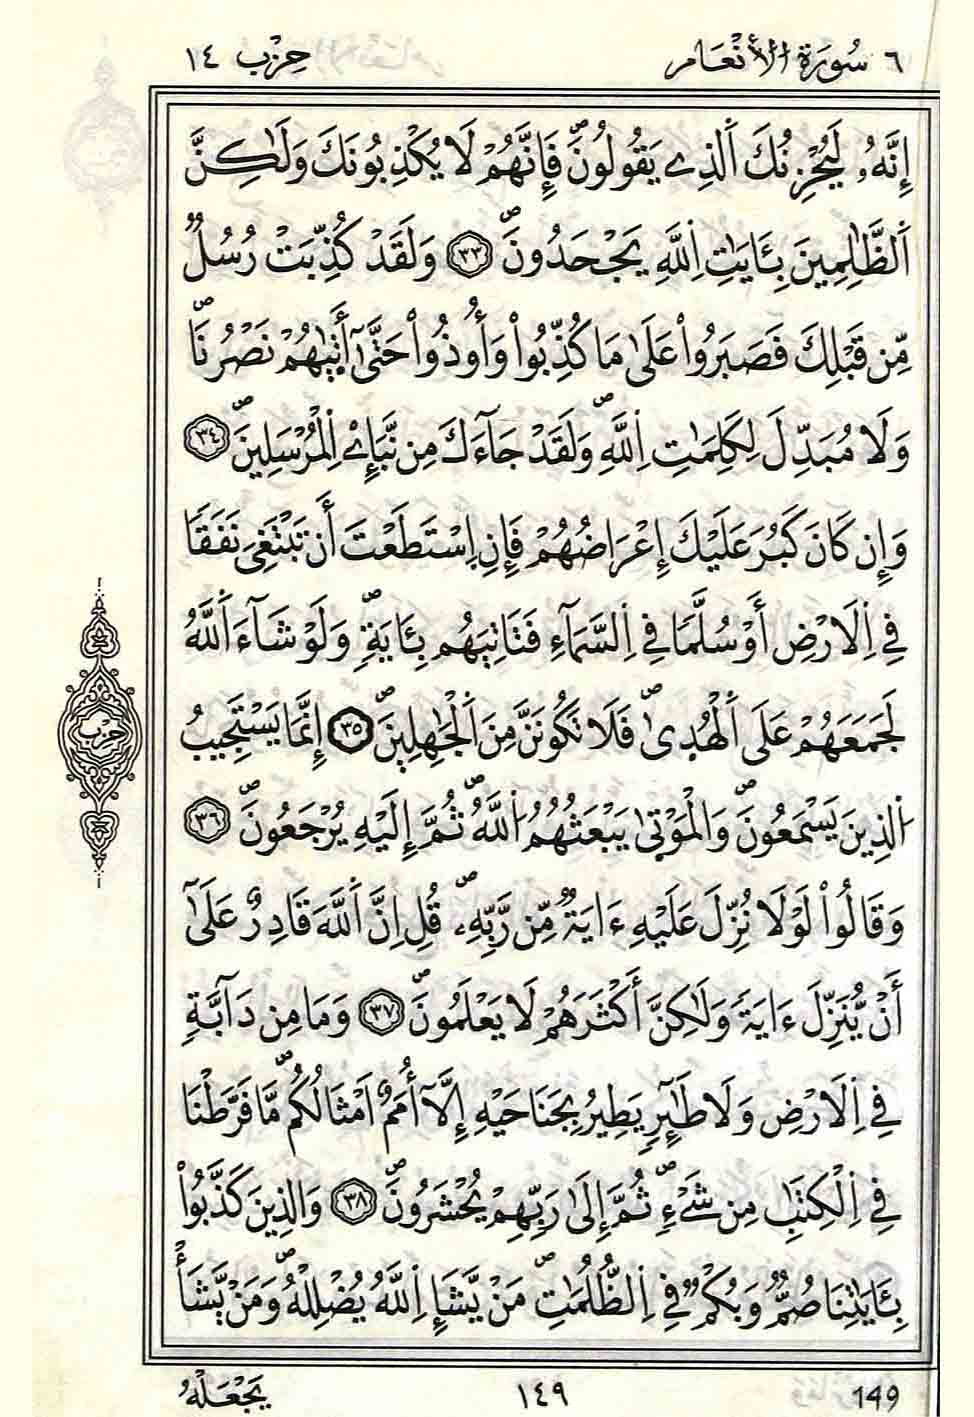 ٦ سُورَةُ الأَنْعَام حِزْب ١٤
إِنَّهُۥ لَيُحْزِنُكَ ٱلَذِے يَقُولُونَۖ فَإِنَّهُمْ لَا يُكْذِبُونَكَ وَلَٰكِنَّ
ٱلظَّٰلِمِينَ بِـَٔايَٰتِ اِ۬للَّهِ يَجْحَدُونَۖ ٣٣ وَلَقَدْ كُذِّبَتْ رُسُلٞ
مِّن قَبْلِكَ فَصَبَرُواْ عَلَىٰ مَا كُذِّبُواْ وَأُوذُواْ حَتَّىٰٓ أَت۪ىٰهُمْ نَصْرُنَاۖ
وَلَا مُبَدِّلَ لِكَلِمَٰتِ اِ۬للَّهِۖ وَلَقَدْ جَآءَكَ مِن نَّبَإِےْ اِ۬لْمُرْسَلِينَۖ ٣٤
وَإِن كَانَ كَبُرَ عَلَيْكَ إِعْرَاضُهُمْ فَإِنِ اِ۪سْتَطَعْتَ أَن تَبْتَغِيَ نَفَقاٗ
فِي اِ۬لَارْضِ أَوْ سُلَّماٗ فِي اِ۬لسَّمَآءِ فَتَاتِيَهُم بِـَٔايَةٖۖ وَلَوْ شَآءَ اَ۬للَّهُ
لَجَمَعَهُمْ عَلَى اَ۬لْهُد۪ىٰۖ فَلَا تَكُونَنَّ مِنَ اَ۬لْجَٰهِلِينَۖ ٣٥ إِنَّمَا يَسْتَجِيبُ
اُ۬لذِينَ يَسْمَعُونَۖ وَالْمَوْت۪ىٰ يَبْعَثُهُمُ اُ۬للَّهُۖ ثُمَّ إِلَيْهِ يُرْجَعُونَۖ ٣٦
وَقَالُواْ لَوْلَا نُزِّلَ عَلَيْهِ ءَايَةٞ مِّن رَّبِّهِۦۖ قُلِ اِنَّ اَ۬للَّهَ قَادِرٌ عَلَىٰٓ
أَنْ يُّنَزِّلَ ءَايَةٗ وَلَٰكِنَّ أَكْثَرَهُمْ لَا يَعْلَمُونَۖ ٣٧ وَمَا مِن دَآبَّةٖ
فِي اِ۬لَارْضِ وَلَا طَٰٓئِرٖ يَطِيرُ بِجَنَاحَيْهِ إِلَّآ أُمَمٌ اَمْثَالُكُمۖ مَّا فَرَّطْنَا
فِي اِ۬لْكِتَٰبِ مِن شَےْءٖۖ ثُمَّ إِلَىٰ رَبِّهِمْ يُحْشَرُونَۖ ٣٨ وَالذِينَ كَذَّبُواْ
بِـَٔايَٰتِنَا صُمّٞ وَبُكْمٞ فِي اِ۬لظُّلُمَٰتِۖ مَنْ يَّشَإِ اِ۬للَّهُ يُضْلِلْهُۖ وَمَنْ يَّشَأْ
حِزْب
149 ١٤٩ يَجْعَلْهُ